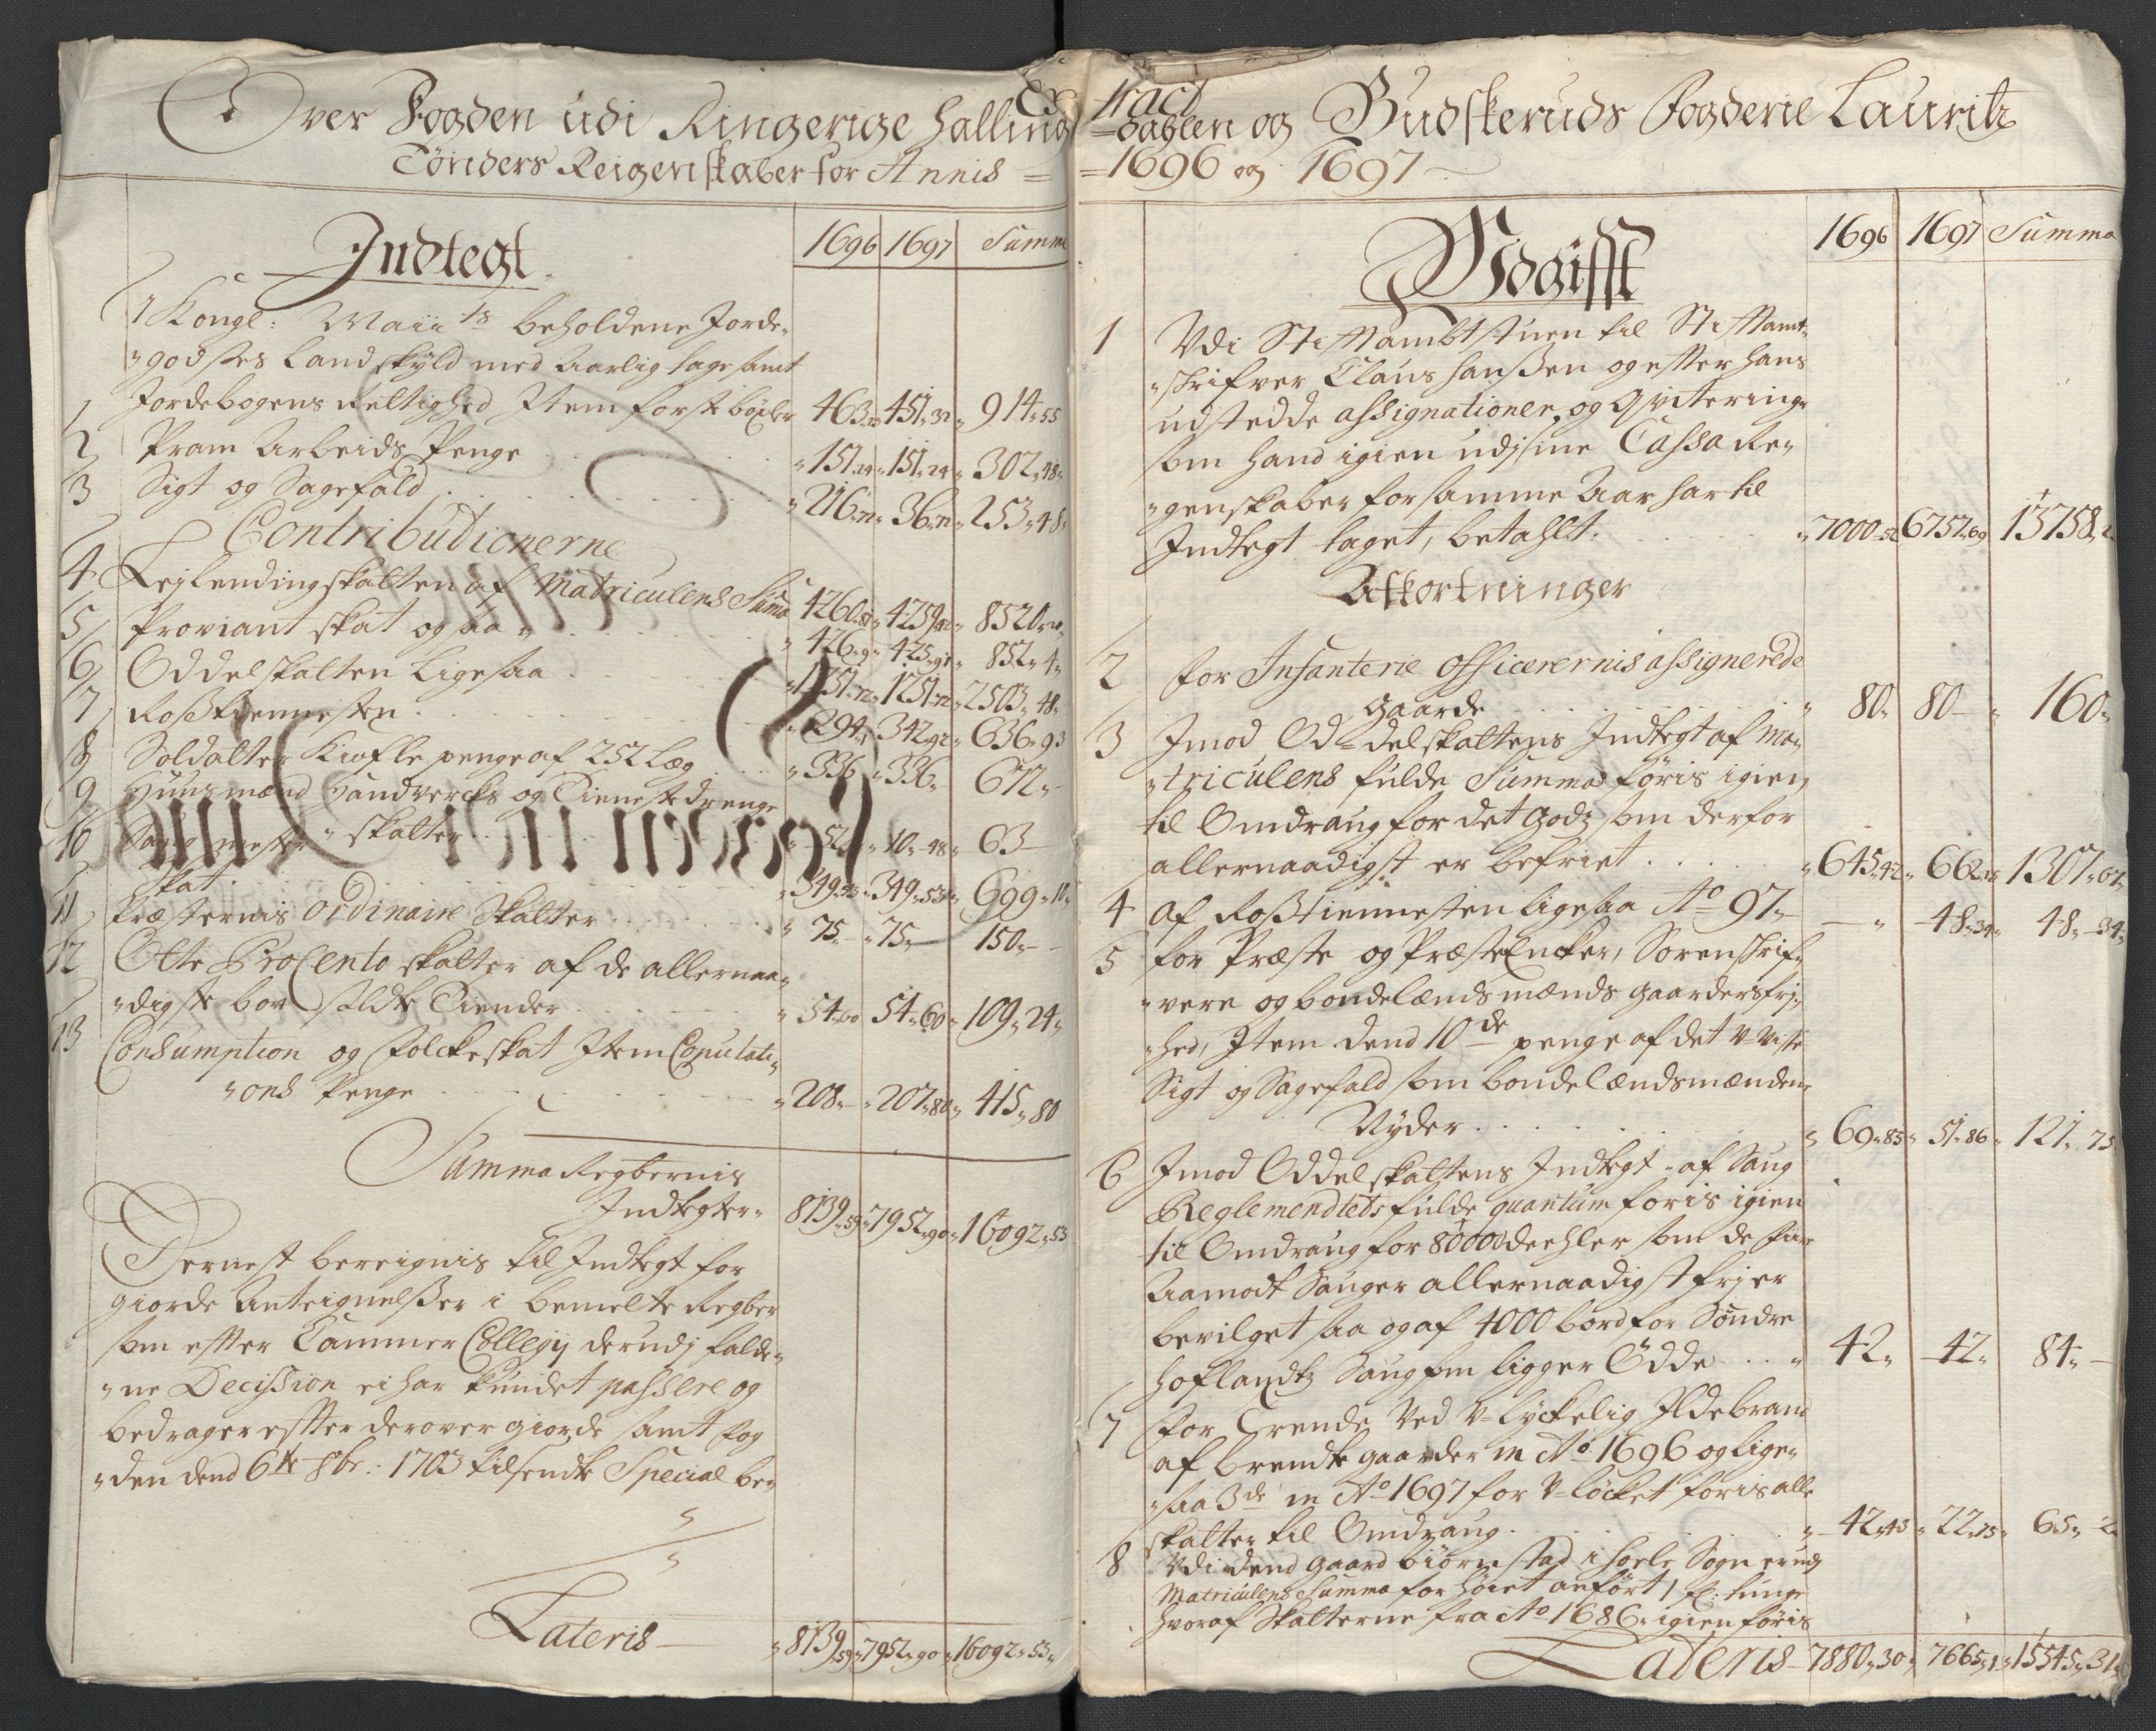 Extract
Over Fogden udi Ringerige Halling-
=dahlen og Budskeruds Fogderie Lauritz
Tønders Reigenskaber for Annis =
=1696 og 1697
Indtegt
1696 1697 Summa
1 Kongl: Maiits beholdene Jorde-
"godses Landskyld med Aarlig tage samt
Jordebogens Rettighed Item første böxler 463 451"32" 914"55
2 Pram Arbeids Penge " 151"24" 151"24" 302"48"
3 Sigt og Sagefald " 216"72" 36"72" 253"48"
Contributionerne
4 Lejlendingskatten af Matriculens Suma 4260 4259 8520
5 Proviant skat og saa " 426"9" 425"91" 852"4"
6 Oddelskatten Ligesaa " 1251"72" 1251"72" 2503"48"
7 Rosstiennesten " 294"1 342"92" 636"93
8 Soldater Kiofle penge af 252 Læg " 336 " 336" 672"
9 Huusmænd Handvercks og Tienestedrenge
skatter " 52 " 10"48" 63
10 Saug
skat " 349"53" 349"53" 699"10"
11 Præsternis Ordinaire Skatter " 75 " 75" 150"
12 Otte ProCento skatter af de allernaa"
"digste bort soldte Tiender " 54"60 54"60" 109"24"
13 Consumption og Folckeskat Item Copulati"
"ons Penge " 208" " 207"80" 415"80
Summa Regbernis
Indtegter" 8139"59" 7952"90" 16092"53
Dernest bereignis til Indtegt for
giorde Anteignelsser i bemelte Regber
som efter Cammer Collegij derudj falde"
"ne Decission ei har kundet passere og
bedrager effter derover giorde samt fog
"den dend 6te 8br: 1703 tilsendte Special be"
Lateris " 8139"59" 7952"90" 16092"53"
Udgifft
1696 1697 Summa
1 Vdi Stiftambtstuen til Stiftamt"
"schrifver Claus Hanssen og effter hans
udstedde assignationer og Qvitering"
som hand igien udj sine Cassa Re"
"genskaber for samme Aar har til
Indtegt taget, betahlt. " 7000 6757"69 13758"2
Afkortninger
2 for Infanterie officerernis assignerede
gaarde " 80" 80 " 160"
3 Imod Oddelskattens Indtegt af Ma"
"triculens fulde Summa föris igien
til Omdraug for det Godz som derfor
allernaadigst er befriet " 645"42" 662 1307"62"
4 af Rosstiennesten ligesaa Ao 97 " 48"34" 48"34"
5 for Præste og Præste Encker, Sorenschrif"
"vere og bondelændsmænds gaardersfrj"
"hed, Item dend 10de penge af det V-visse
Sigt og Sagefald som bondelændsmænden"
Nyder " 69"85" 51"86" 121"75
6 Imod Oddelskattens Indtegt af Saug
Reglementets fulde quantum foris igien
til Omdraug for 8000 deehler som de fire
Aamodt Sauger allernaadigst frj er
bevilget saa og af 4000 bord for Söndre
Hoflandtz Saug som ligger Ödde " 42" 42" 84"
7 for Trende Ved V-lyckelig Ildebrand
af brendte gaarder in Ao 1696 og lige"
"saa 3de in Ao 1697 for V-löcket foris alle
skatter til Omdraug " 42"43 " 22"55" 65"2
8 Vdi dend gaard biörnstad i Hoele Sogn er udj
Matriculens Summa for höiet anfört 1 tunge
hvoraf Skatterne fra Ao 1686 igien föris
Lateris 7880"30" 7665"1" 15545"31"